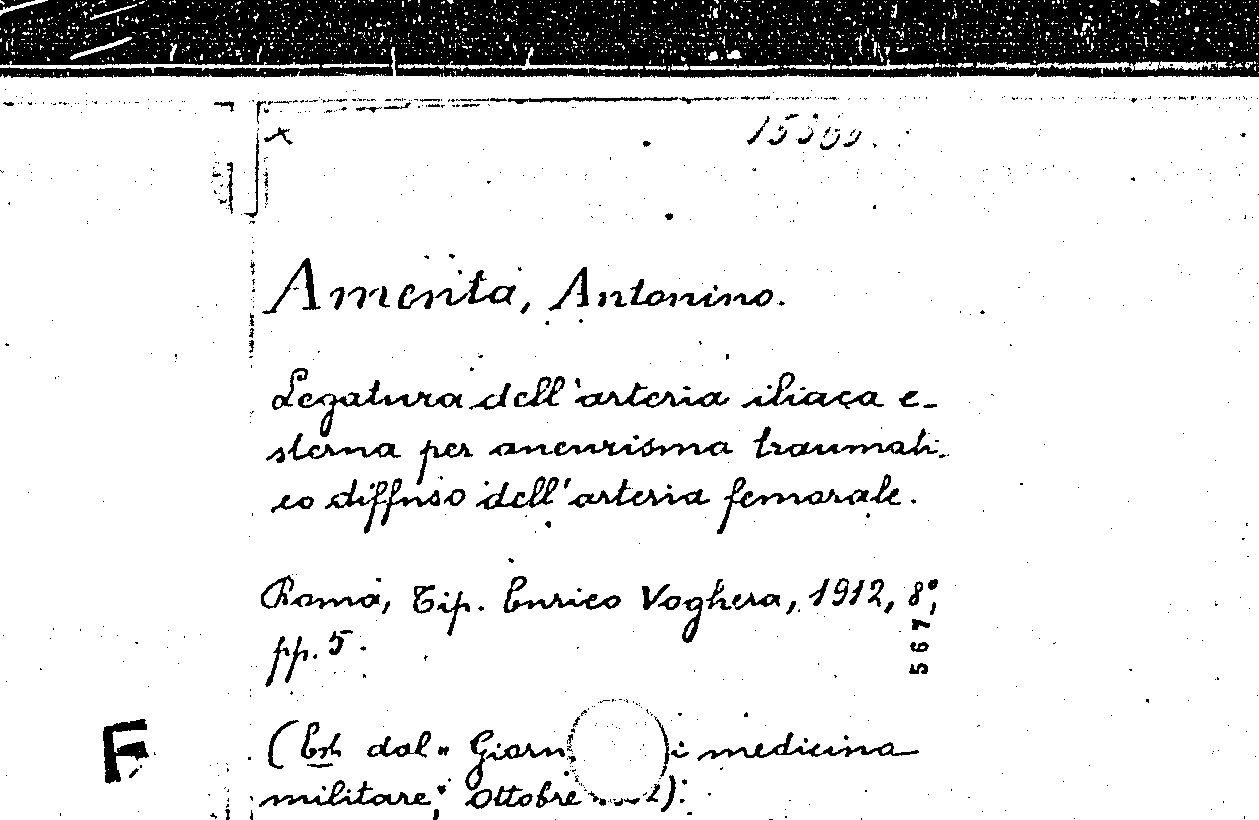 Amenta, Antonino.
Legatura dell'arteria iliaca e-
sterna per aneurisma traumati-
co diffuso dell'arteria femorale.
Roma, Tip. Enrico Voghera, 1912, 8°,
pp. 5.
567
F
(Estr. dal "Giorn i medicina
militare", Ottobre 2).